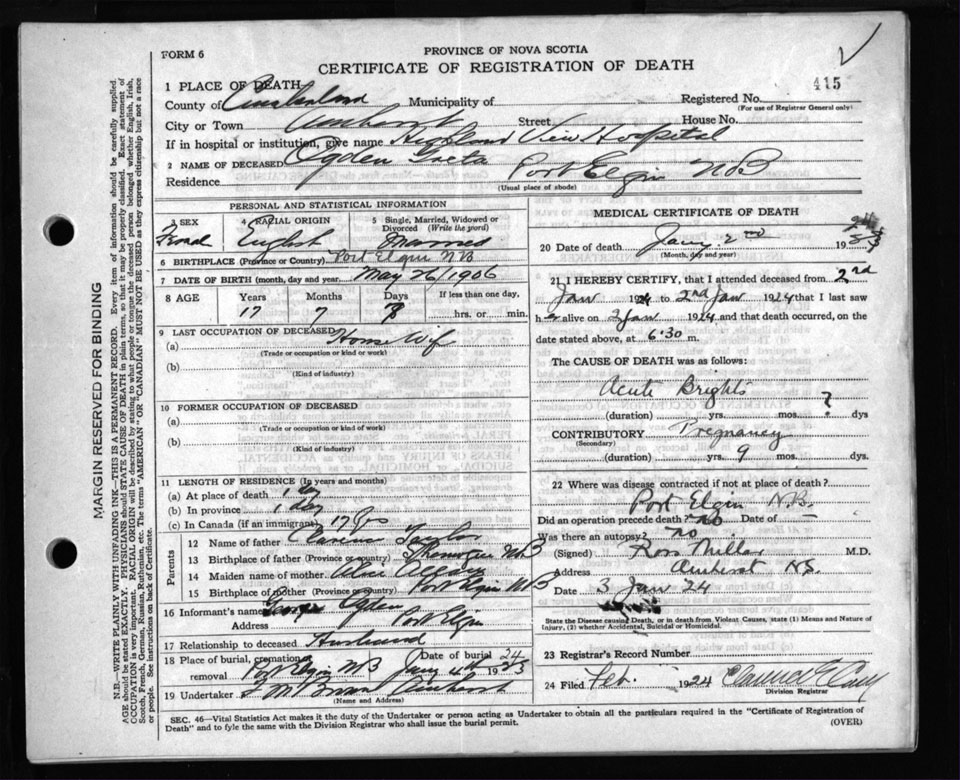 PROVINCE OF NOVA SCOTIA
FORM 6
CERTIFICATE OF REGISTRATION OF DEATH
415
1 PLACE OF DEATH
County of Cumberland Municipality of Registered No.
(For use of Registrar General only)
City or Town Amherst Street House No.
If in hospital or institution, give name Highland View Hospital
2 NAME OF DECEASED Ogden Greta
Residence Port Elgin NB
(Usual place of abode)
PERSONAL AND STATISTICAL INFORMATION
3 SEX 4 RACIAL ORIGIN 5 Single, Married, Widowed or Divorced (Write the word)
English Married
6 BIRTHPLACE (Province or Country) Port Elgin NB
7 DATE OF BIRTH (month, day and year) May 26/1906
8 AGE Years Months Days If less than one day,
17 7 8 hrs. or min.
9 LAST OCCUPATION OF DECEASED
(a) House Wife
(Trade or occupation or kind or work)
(b)
(Kind of industry)
10 FORMER OCCUPATION OF DECEASED
(a)
(Trade or occupation or kind of work)
(b)
(Kind of industry)
11 LENGTH OF RESIDENCE (In years and months)
(a) At place of death 1 day
(b) In province 1 day
(c) In Canada (if an immigrant) 17 yrs
Parents
12 Name of father Clarence Taylor
13 Birthplace of father (Province or country) NB
14 Maiden name of mother
15 Birthplace of mother (Province or country) Port Elgin NB
16 Informant's name George Ogden
Address Port Elgin
17 Relationship to deceased Husband
18 Place of burial, cremation or removal Port Elgin NB Date of burial Jany 4th 1924
19 Undertaker Amherst
(Name and Address)
MEDICAL CERTIFICATE OF DEATH
20 Date of death Jany. 2nd 1924
(Month, day and year)
21 I HEREBY CERTIFY, that I attended deceased from 2nd
Jan 1924 to 2nd Jan 1924 that I last saw
h alive on 2 Jan 1924 and that death occurred, on the
date stated above, at 6.30 m.
The CAUSE OF DEATH was as follows:
Acute Brights
(duration) yrs. mos. ? dys
CONTRIBUTORY Pregnancy
(Secondary)
(duration) yrs. 9 mos. dys.
22 Where was disease contracted if not at place of death?
Port Elgin N.B.
Did an operation precede death? no Date of —
Was there an autopsy? no
(Signed) Ross Millar M.D.
Address Amherst N.S.
Date 3 Jan 24
State the Disease causing Death, or in death from Violent Causes, state (1) Means and Nature of
Injury, (2) whether Accidental, Suicidal or Homicidal.
23 Registrar's Record Number
24 Filed Feb. 1924
Division Registrar
SEC. 46—Vital Statistics Act makes it the duty of the Undertaker or person acting as Undertaker to obtain all the particulars required in the "Certificate of Registration of
Death" and to fyle the same with the Division Registrar who shall issue the burial permit. (OVER)
MARGIN RESERVED FOR BINDING
N.B.—WRITE PLAINLY WITH UNFADING INK—THIS IS A PERMANENT RECORD. Every item of information should be carefully supplied.
AGE should be stated EXACTLY. PHYSICIANS should STATE CAUSE OF DEATH in plain terms, so that it may be properly classified. Exact statement of
OCCUPATION is very important. RACIAL ORIGIN will be described by stating to what people or tongue the deceased person belonged whether English, Irish,
Scotch, French, German, Russian, Ruthenian, etc. The terms "AMERICAN" OR "CANADIAN" MUST NOT BE USED as they express citizenship but not a race
or people. See instructions on back of Certificate.